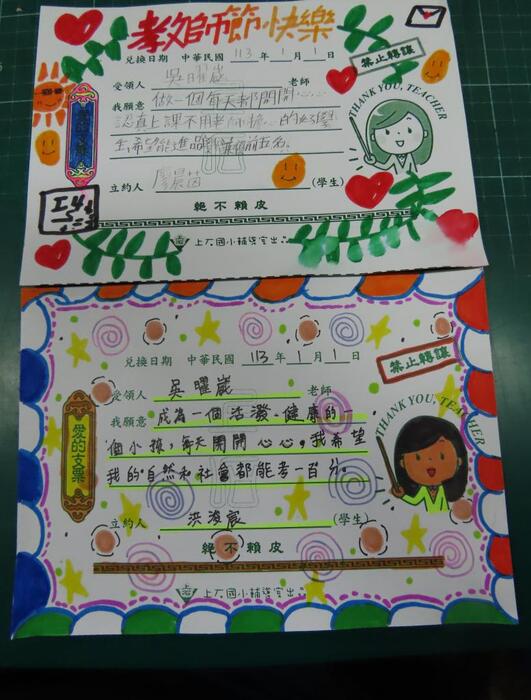 教師節快樂
兌換日期 中華民國 113 年 1 月 1 日
禁止轉讓
受領人 吳曜崴 老師
我願意 做一個每天都開開心心
認真上課不用老師擔心的好學
生,希望能進步到班前五名。
THANK YOU, TEACHER
立約人 廖晨茵 (學生)
絕不賴皮
上石國小輔導室出品
兌換日期 中華民國 113 年 1 月 1 日
禁止轉讓
受領人 吳曜崴 老師
我願意 成為一個活潑、健康的一
個小孩,每天開開心心,我希望
我的自然和社會都能考一百分。
THANK YOU, TEACHER
愛的支票
立約人 洪浚宸 (學生)
絕不賴皮
上石國小輔導室出品